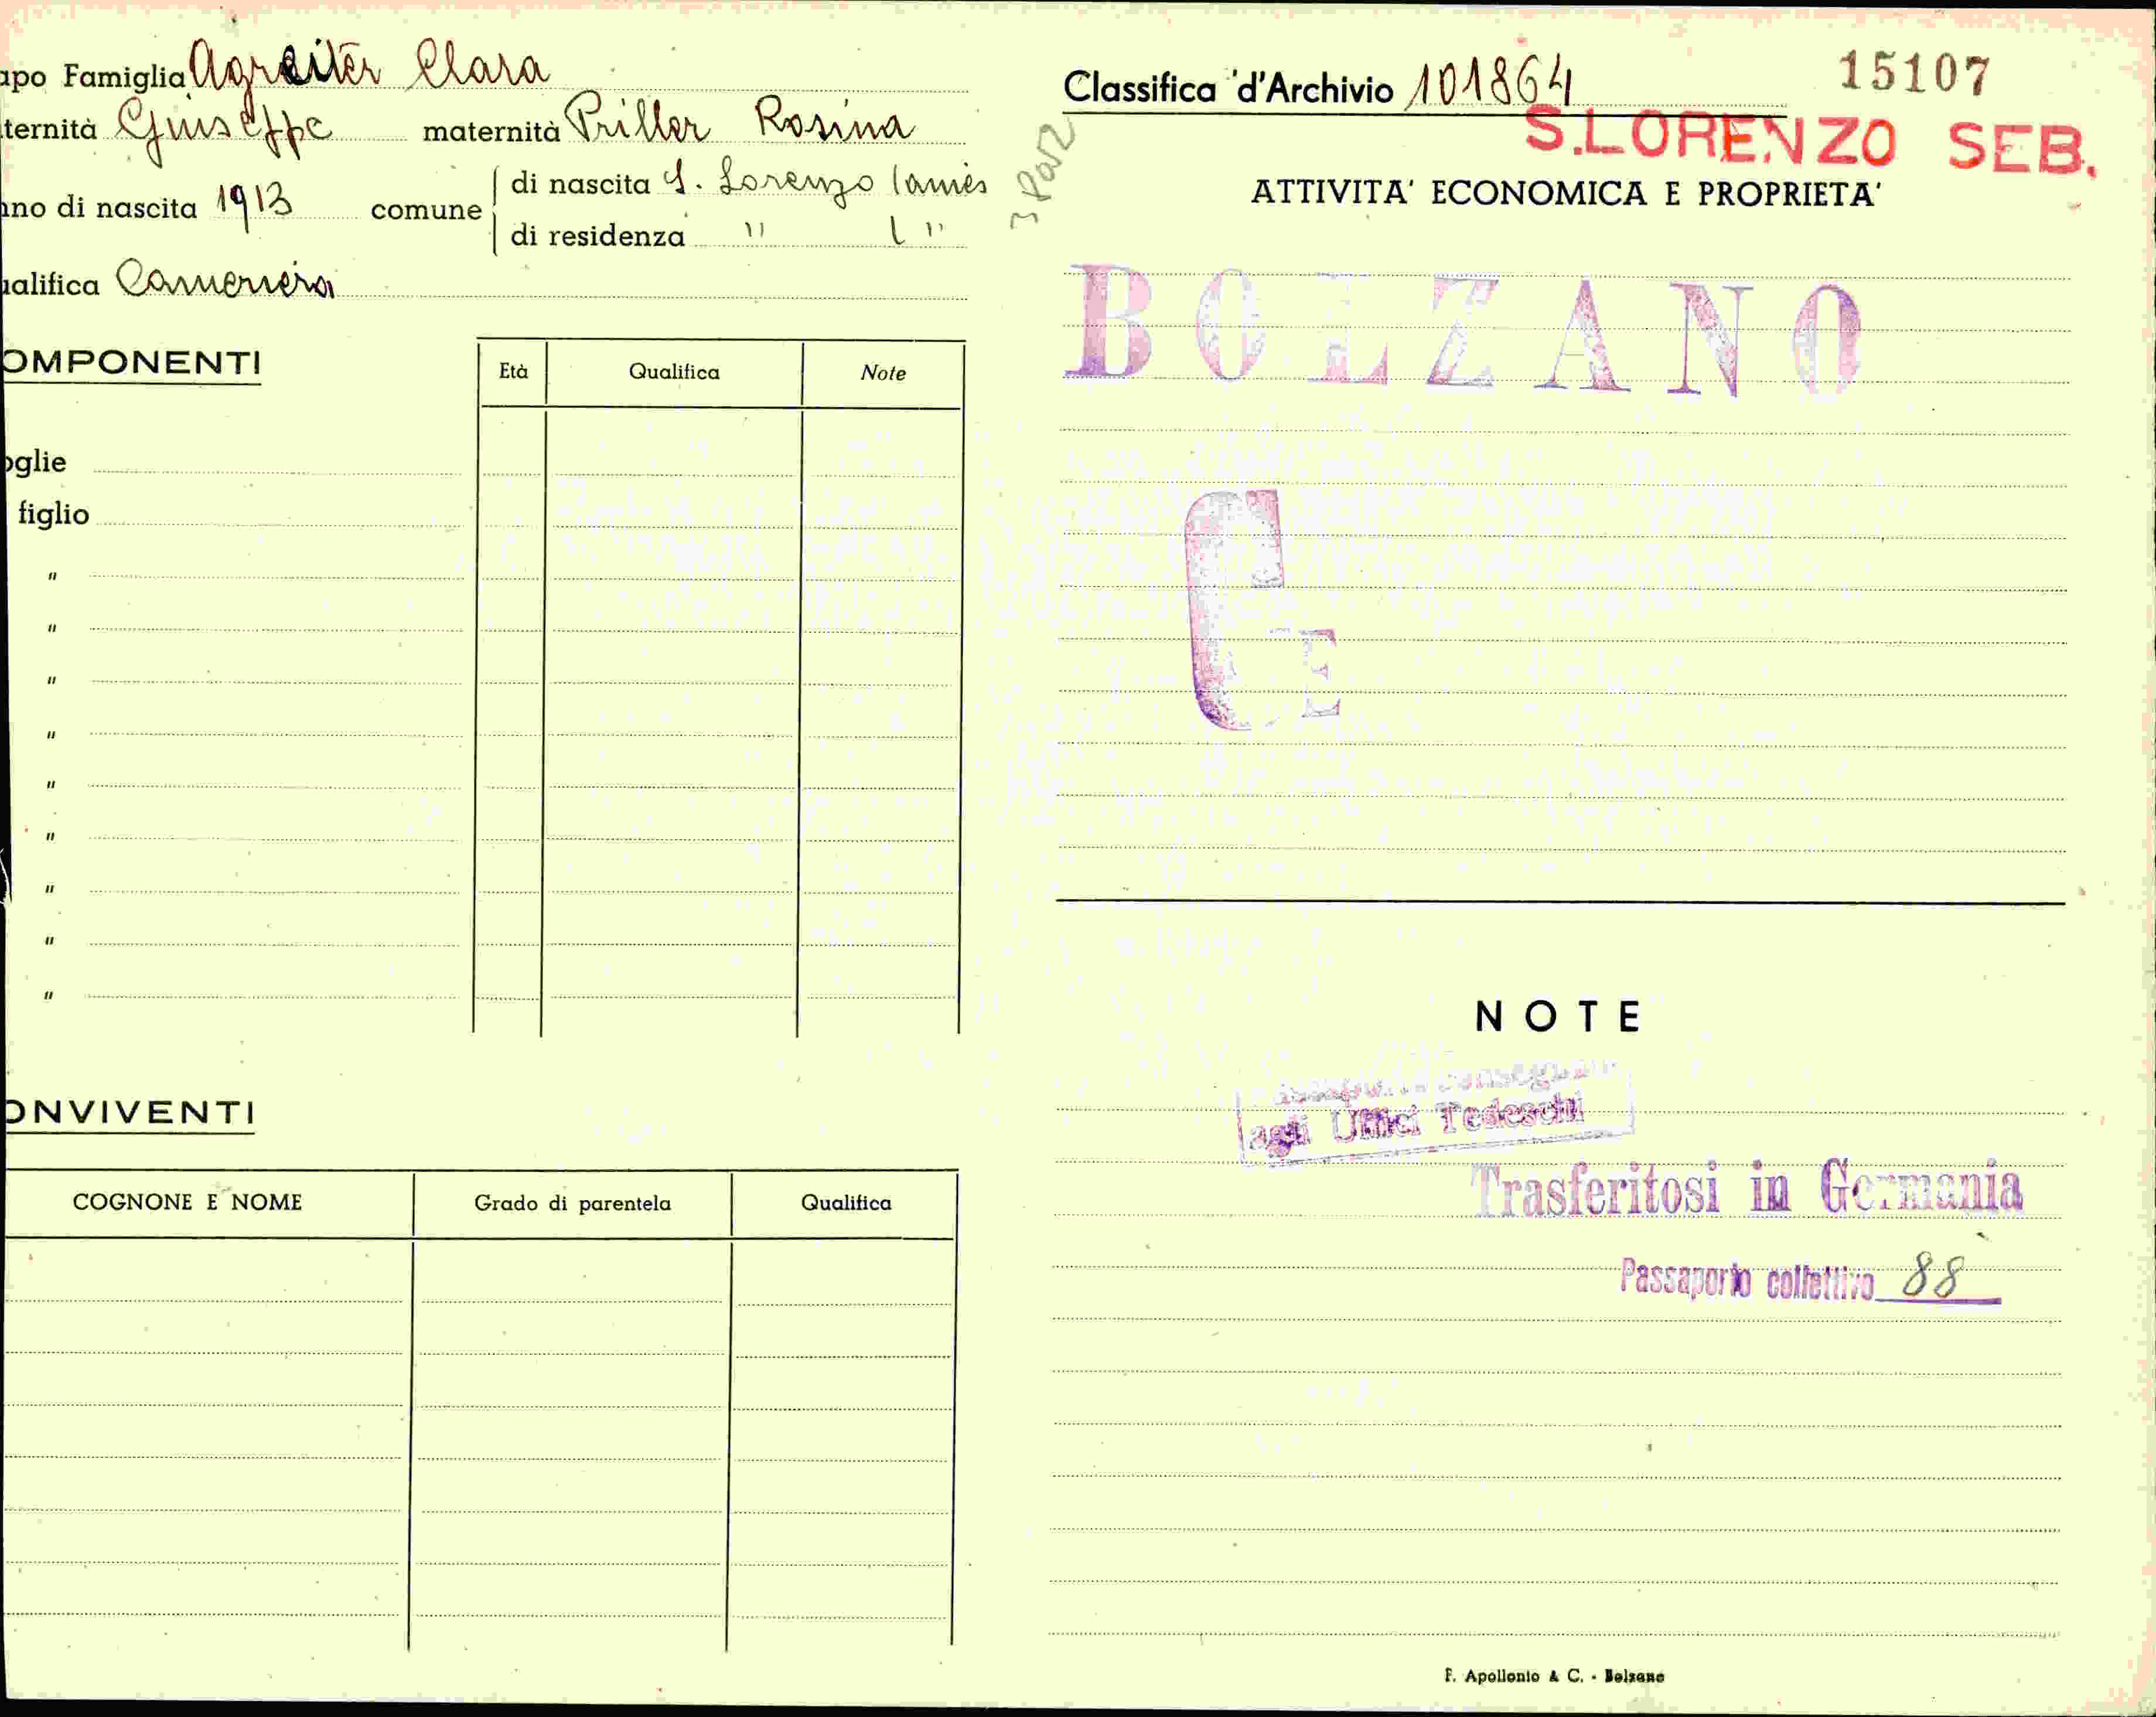 apo Famiglia Agreiter Clara
ternità Giuseppe maternità Priller Rosina
nno di nascita 1913 comune di nascita S. Lorenzo
di residenza " "
alifica Cameriera
OMPONENTI
Età Qualifica Note
oglie
figlio
"
"
"
"
"
"
"
"
"
ONVIVENTI
COGNONE E NOME Grado di parentela Qualifica
Classifica d'Archivio 101864
15107
S.LORENZO SEB.
ATTIVITA' ECONOMICA E PROPRIETA'
BOLZANO
C
E
NOTE
agli Uffici Tedeschi
Trasferitosi in Germania
Passaporto collettivo 88
F. Apollonio & C. - Bolzano